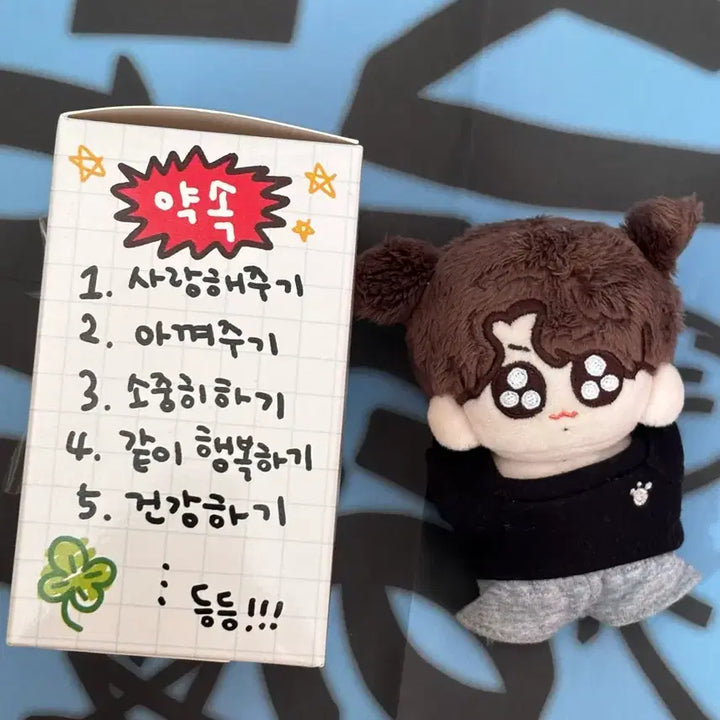 약속
1. 사랑해주기
2. 아껴주기
3. 소중히하기
4. 같이 행복하기
5. 건강하기
⋮ 등등!!!